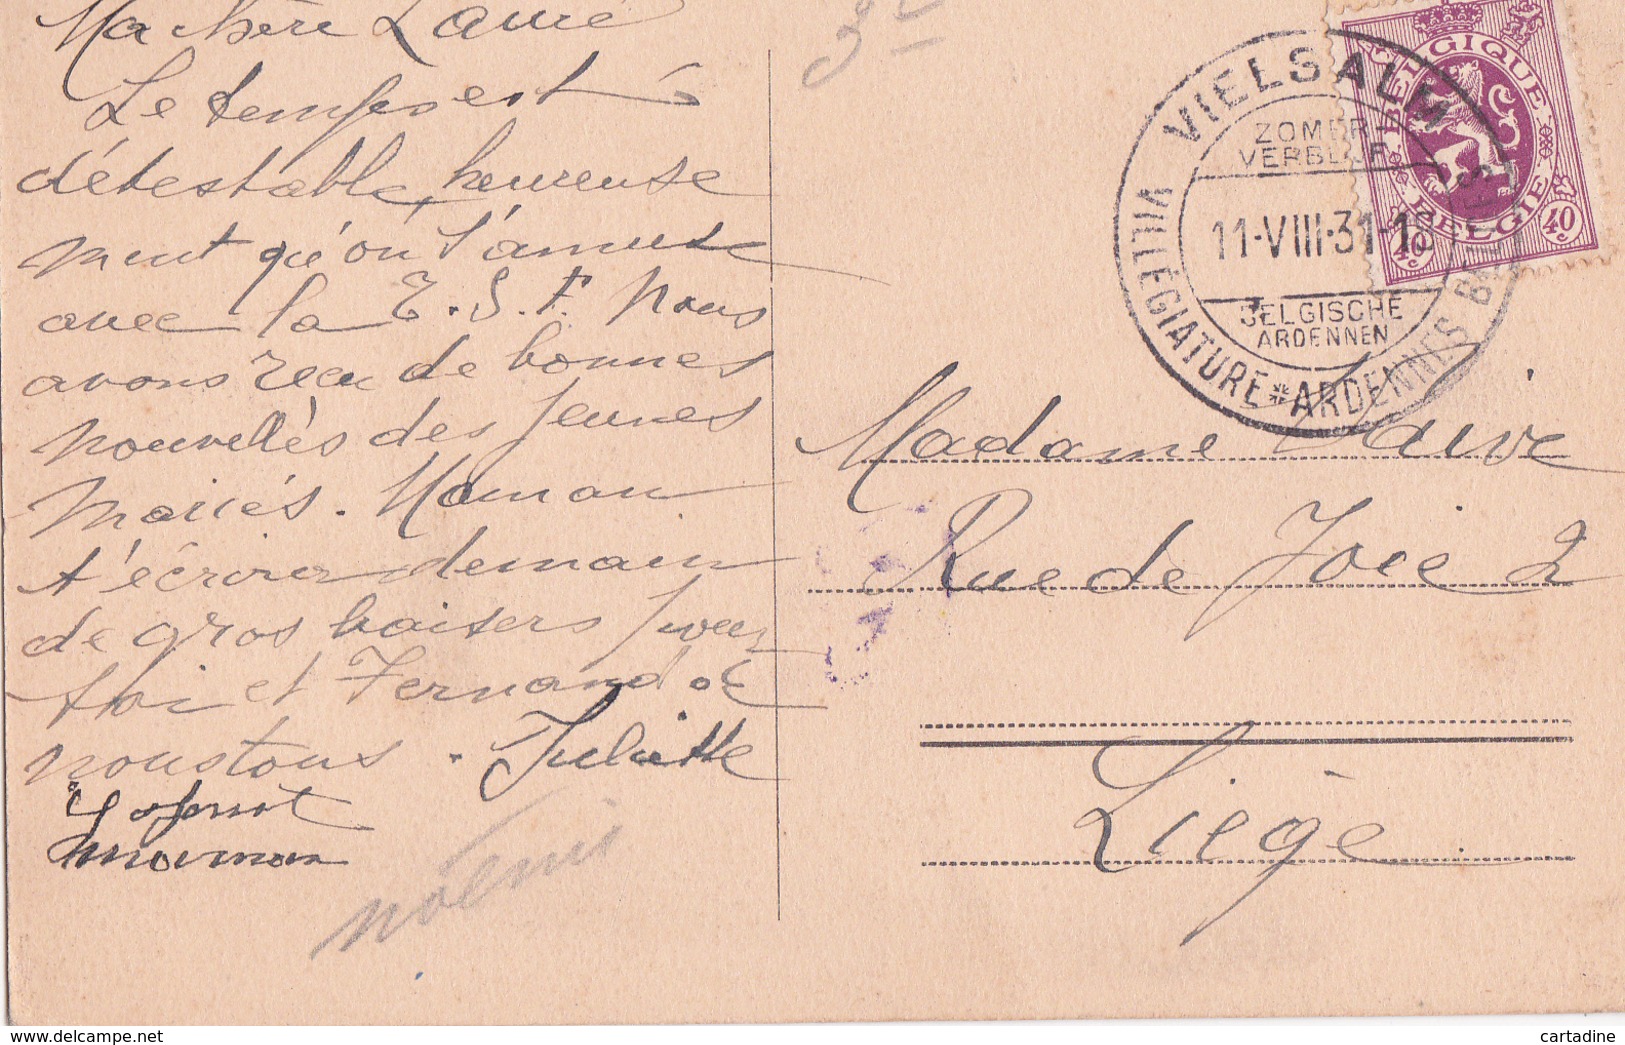 Ma chère Laure
Le temps est
détestable, heureuse
ment qu'on s'amuse
avec la T. S. F. Nous
avons reçu de bonnes
nouvelles des jeunes
mariés. Maman
t'écrira demain
de gros baisers pour
toi et Fernand de
nous tous. Juliette
maman
noémi
VIELSALM
VILLÉGIATURE * ARDENNES BELGES
ZOMER-
VERBLIJF
11-VIII-31-18
BELGISCHE
ARDENNEN
BELGIQUE
BELGIE
40c 40c
Madame
Rue de Joie 2
Liège
delcampe.net
cartadine